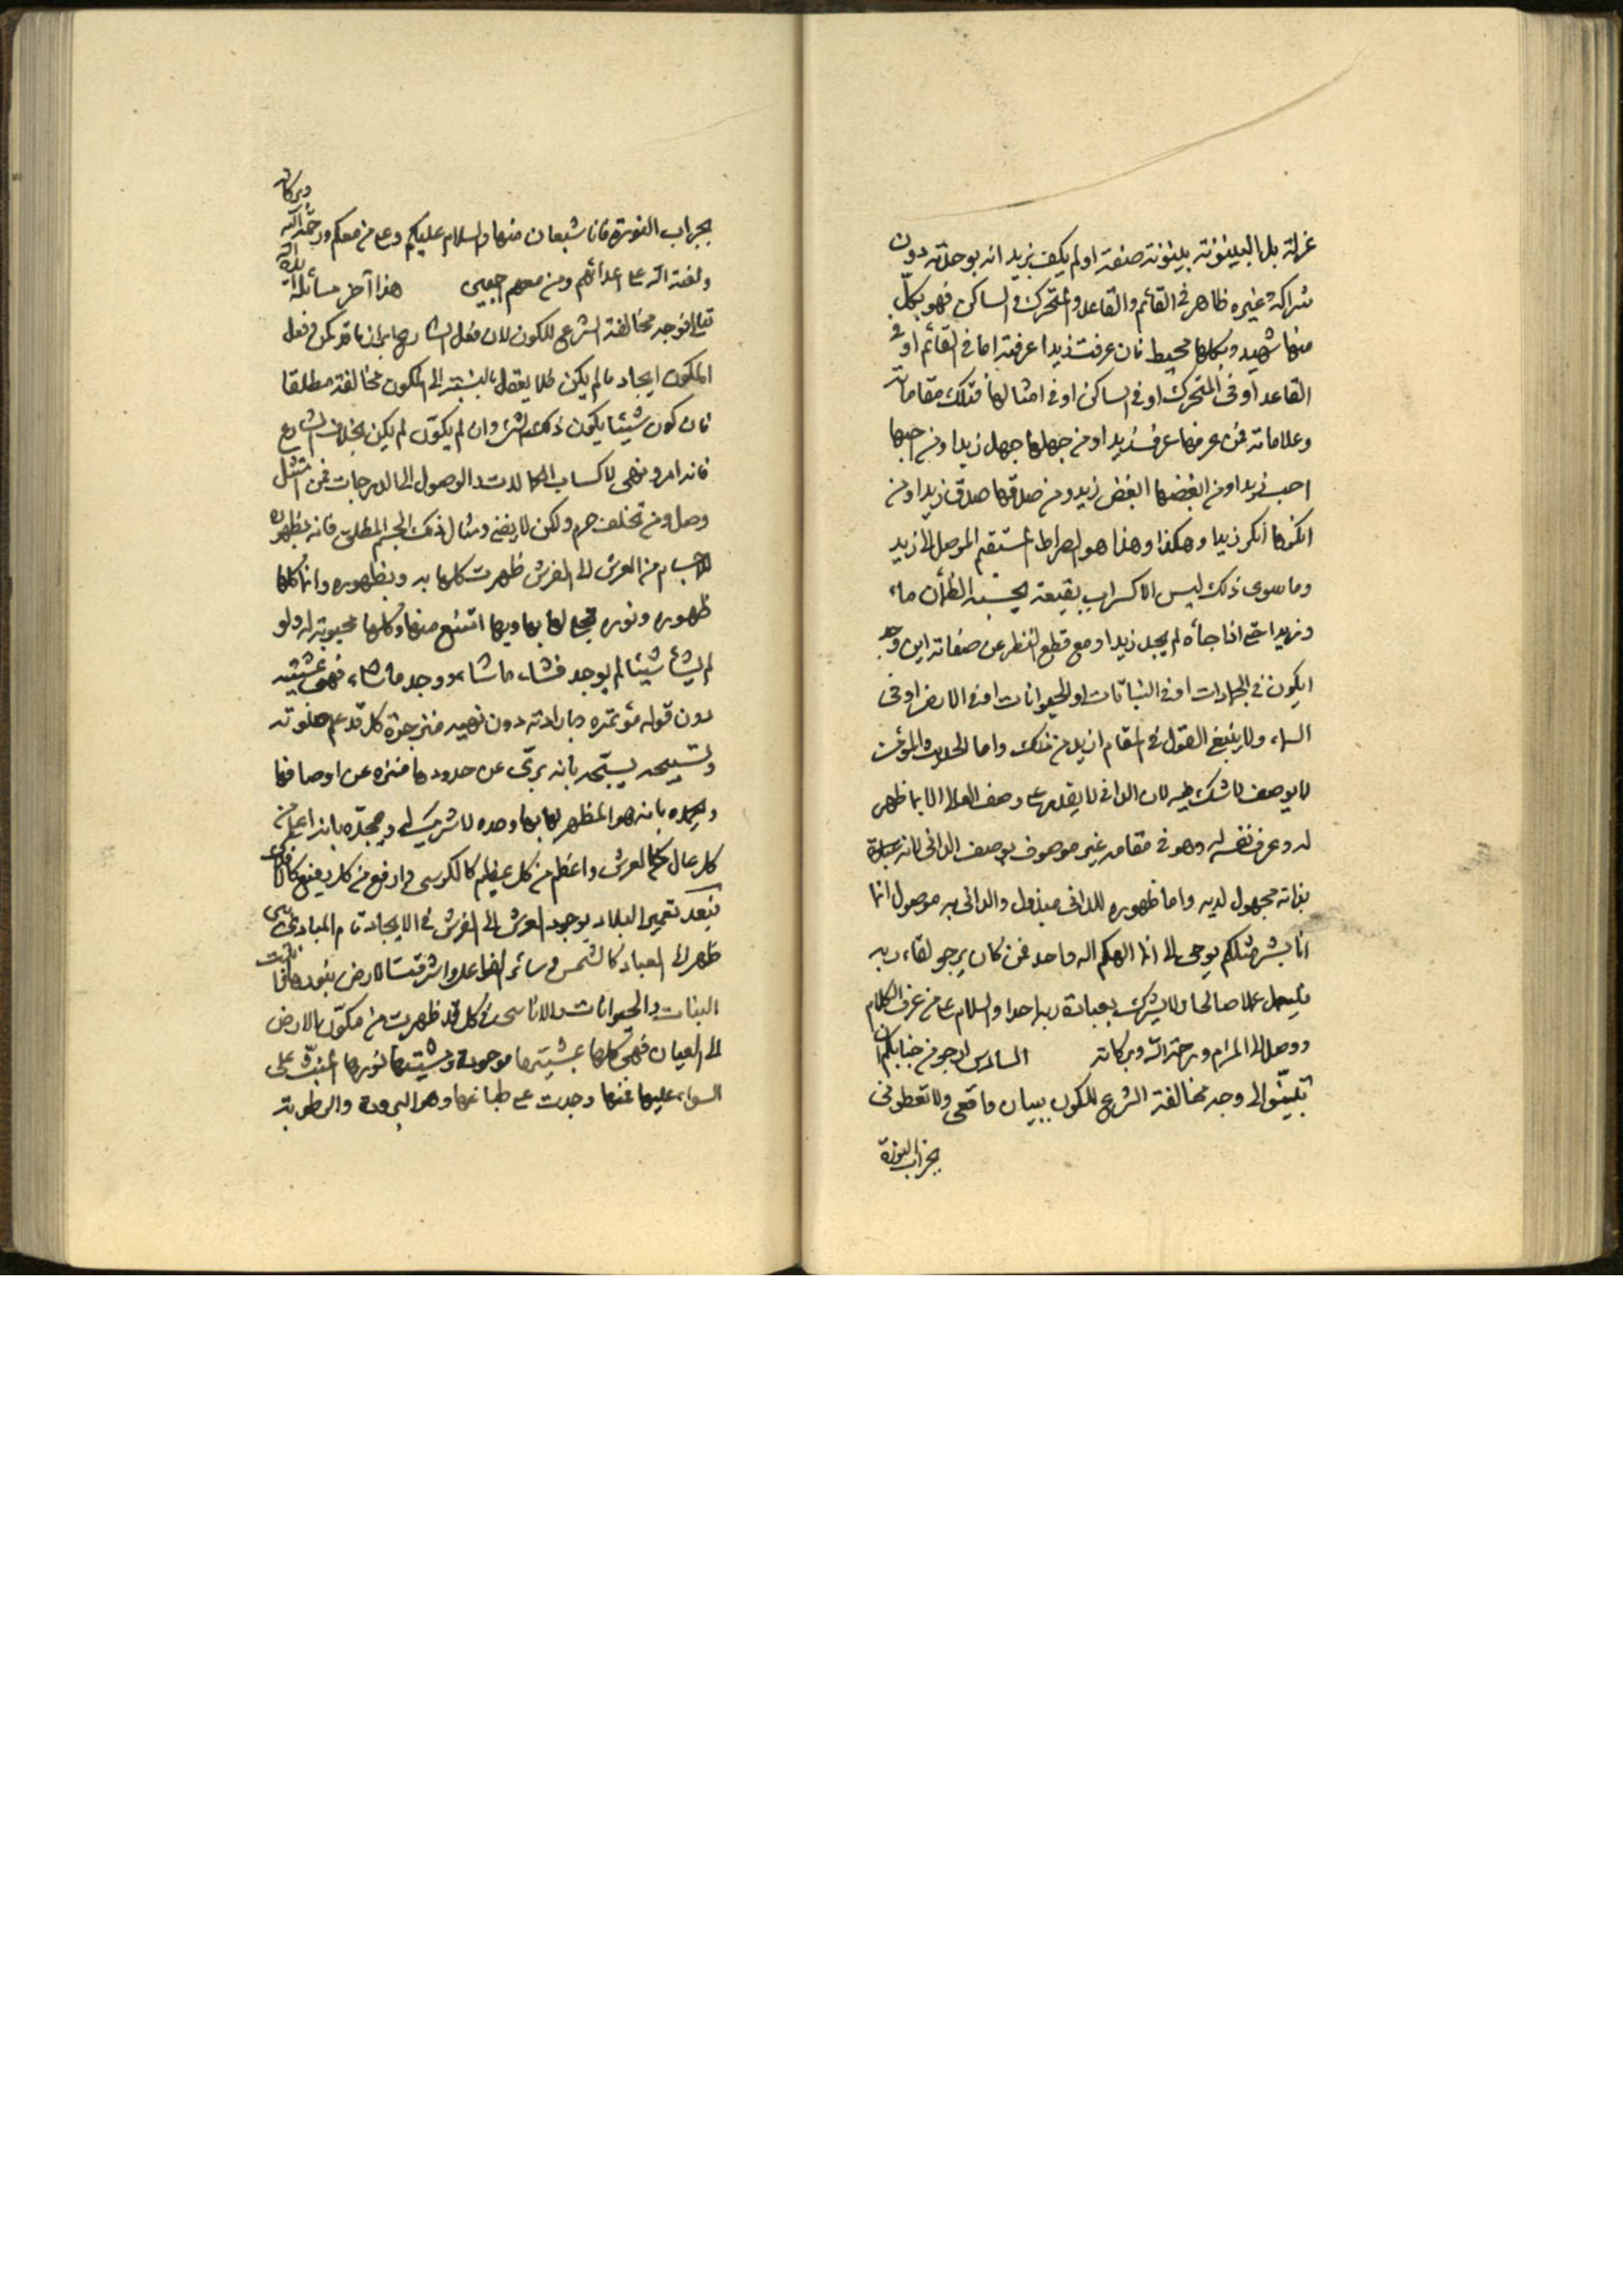 عزلة بل البينونة بينونة صفة اولم يكف بزيد انه بوحدته دون
شراكة غيره ظاهر في القائم والقاعد والمتحرك والساكن فهو بكل
منها شهيد وبكلها محيط فان عرفت زيدا عرفته اما في القائم او في
القاعد او في المتحرك او في الساكن او في امثالها فتلك مقاماته
وعلاماته فمن عرفها عرف زيدا ومن جهلها جهل زيدا ومن احبها
احب زيدا ومن ابغضها ابغض زيدا ومن صدقها صدق زيدا ومن
انكرها انكر زيدا وهكذا وهذا هو الصراط المستقيم الموصل الى زيد
وما سوى ذلك ليس الا كسراب بقيعة يحسبه الظمأن ماء
وزيدا حتى اذا جاءه لم يجد زيدا ومع قطع النظر عن صفاته اين وجد
ايكون في الجمادات او في النباتات او الحيوانات او في الارض او في
السماء ولا ينبغي القول في المقام ازيد من ذلك واما
لا يوصف لا شك فيه لان الداني لا يقدر على وصف العالي الا بما ظهر
له وعرف نفسه له وهو في مقامه غير موصوف بوصف الداني لانه
بذاته مجهول لديه واما ظهوره للداني مبذول والداني به موصول انما
انا بشر مثلكم يوحى الى انما الهكم اله واحد فمن كان يرجو لقاء ربه
فليعمل عملا صالحا ولا يشرك بعبادة ربه احدا والسلام على من عرف الكلام
ووصل الى المرام ورحمة الله وبركاته السادس ارجو من جنابكم ان
تبينوا لى وجه مخالفة الشرع للكون ببيان واقعي ولا تعطوني
بجراب النورة
وبركاته
بجراب النورة فانا شبعان منها والسلام عليكم وعلى من معكم ورحمة الله
ولعنة الله على اعدائهم ومن معهم اجمعين هذا آخر مسائله
مخالفة الشرع للكون لان فعل
المكون ايجاد ما لم يكن فلا يعقل بالنسبة الى المكون مخالفة مطلقا
فان كون شيئا يكون ذلك الشئ وان لم يكون لم يكن بخلاف الشارع
فانه امر ونهى لاكتساب الكمالات والوصول الى الدرجات فمن امتثل
وصل ومن تخلف حرم ولكن لا يفنى ومثال ذلك الجسم المطلق فانه بظهوره
للاجسام من العرش الى الفرش ظهرت كلها به وبظهوره وانما كلها
ظهوره ونوره تجلى لها بها وبها امتنع منها وكلها مجبوبة له ولو
لم يشأ شيئا لم يوجد فشاء ما شاء ووجد ما شاء فهي بمشيته
دون قوله مؤتمرة وبارادته دون نهيه منزجرة كل قد علم صلوته
وتسبيحه يسبحه بانه برئ عن حدودها منزه عن اوصافها
ويحمده بانه هو المظهر لها بها وحده لا شريك له ويمجده بانه اعلى من
كل عال كالعرش واعظم من كل عظيم كالكرسي وارفع من كل رفيع كالافلاك
فبعد تعمير البلاد بوجود العرش الى الفرش في الايجاد
ظهر الى العباد كالشمس واشرقت الارض بنورها
النبات والحيوانات والاناسي فكل قد ظهرت من مكون الارض
الى العيان فهي كلها بمشيتها موجودة ومشيتها نورها المنبث على
السواء عليها فمنها وجدت على طبائعها وهو البرودة والرطوبة